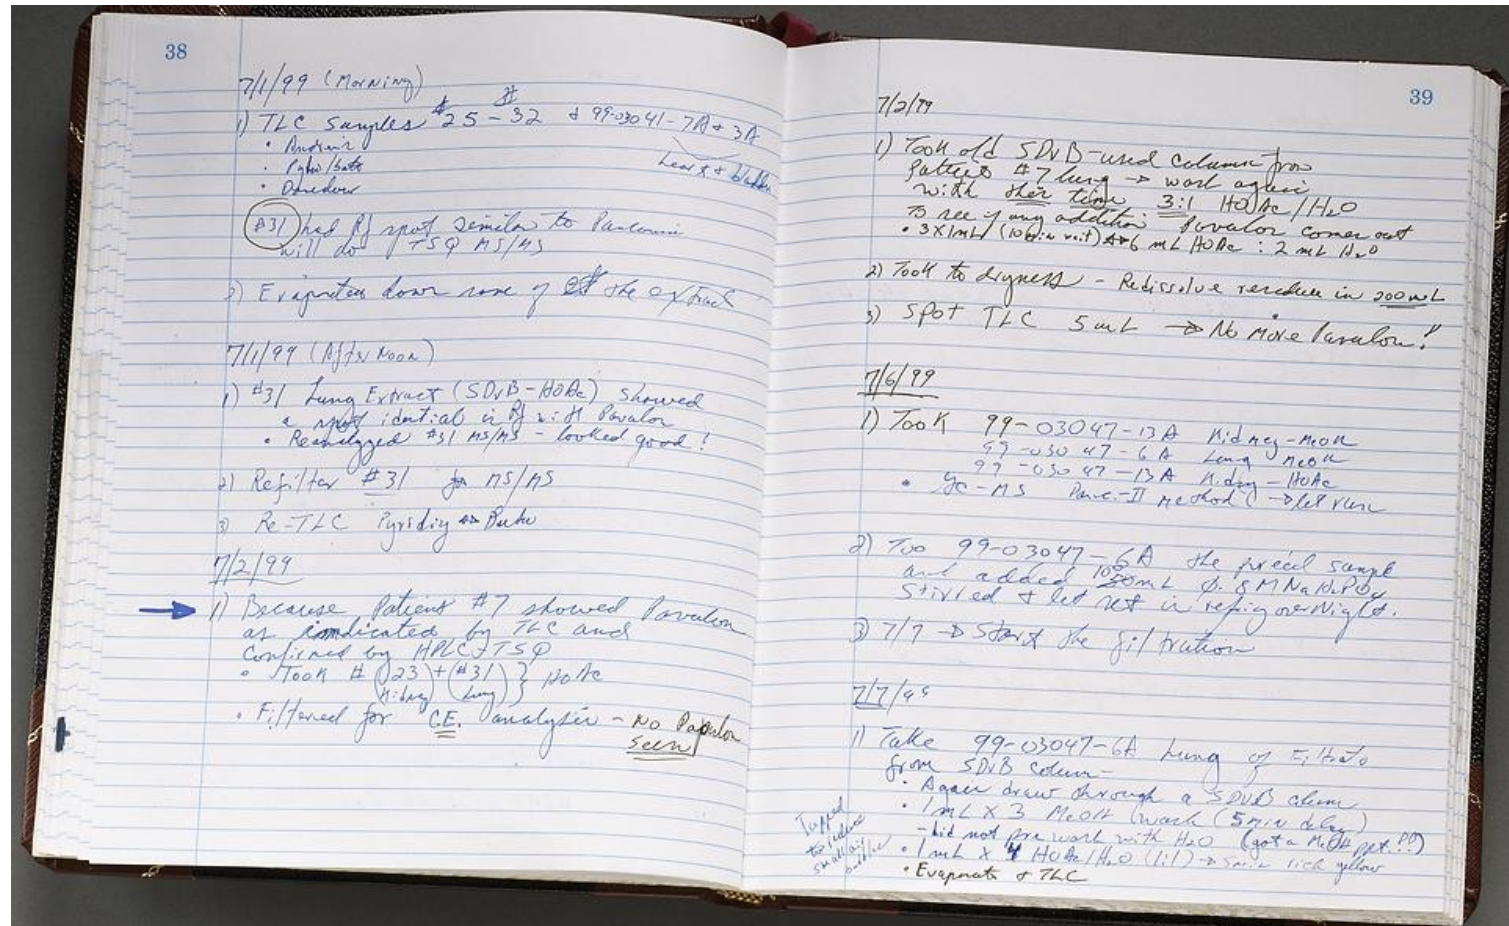 38
7/1/99 (Morning)
1) TLC Samples #25 - #32 & 99-03041-7A & 3A
Heart & bladder
#31 had Rf spot similar to
will do TSQ MS/MS
2) down some of the extract
7/1/99 (AfterNoon)
1) #31 Lung Extract (SDVB-HOAc) showed
a spot identical in Rf with Pavulon
• Reanalyzed #31 MS/MS - looked good!
2) Refilter #31 for MS/MS
3) Re-TLC
7/2/99
1) Because Patient #7 showed Pavulon
as indicated by TLC and
confirmed by HPLC-TSQ
• Took # (23) + (#31) } HOAc
Kidney Lung
• Filtered for C.E. analysis - No Pavulon
seen
39
7/2/99
1) Took old SDVB-used column from
Patient #7 lung → wash again
with this time 3:1 HOAc/H2O
To see if any addition Pavulon comes out
• 3X1mL (10min wait) 6 mL HOAc : 2 mL H2O
2) Took to dryness - Redissolve residue in 200mL
3) Spot TLC 5mL → No More Pavulon!
7/6/99
1) Took 99-03047-13A Kidney-MeOH
99-03047-6A Lung MeOH
99-03047-13A Kidney-HOAc
• GC-MS Method → let run
2) 99-03047-6A the sample
and added mL 0.8M
Stirred & let set in refrig overNight.
3) 7/7 → Start the filtration
7/7/99
1) Take 99-03047-6A Lung of Filtrate
from SDVB Column-
• Again draw through a SDVB column
• 1mL X 3 MeOH (wash (5min delay)
- Did not pre wash with H2O (got a MeOH ppt.!!)
• 1mL X 4 HOAc/H2O (1:1) → rich yellow
• Evaporate & TLC
Tapped
to reduce
small air
bubble